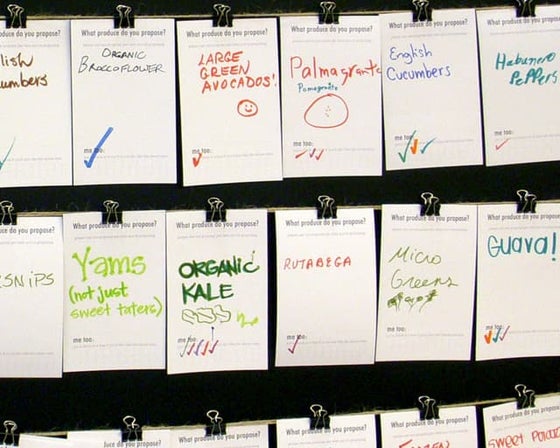 What produce do you propose?
lish
umbers
What produce do you propose?
ORGANIC
BROCCOFLOWER
me too:
What produce do you propose?
LARGE
GREEN
AVOCADOS!
me too:
What produce do you propose?
Palmagrante
Pomegranite
me too:
What produce do you propose?
English
Cucumbers
me too:
What produce do you propose?
Habanero
Peppers
me too:
SNiPS
What produce do you propose?
Yams
(not just
sweet taters)
me too:
What produce do you propose?
ORGANIC
KALE
me too:
What produce do you propose?
RUTABEGA
me too:
What produce do you propose?
Micro
Greens
me too:
What produce do you propose?
Guava!
me too:
uce do you propose?
What produce do you propose?
What produce do you propose?
What produce do you propose?
What produce do you propose?
SWEET